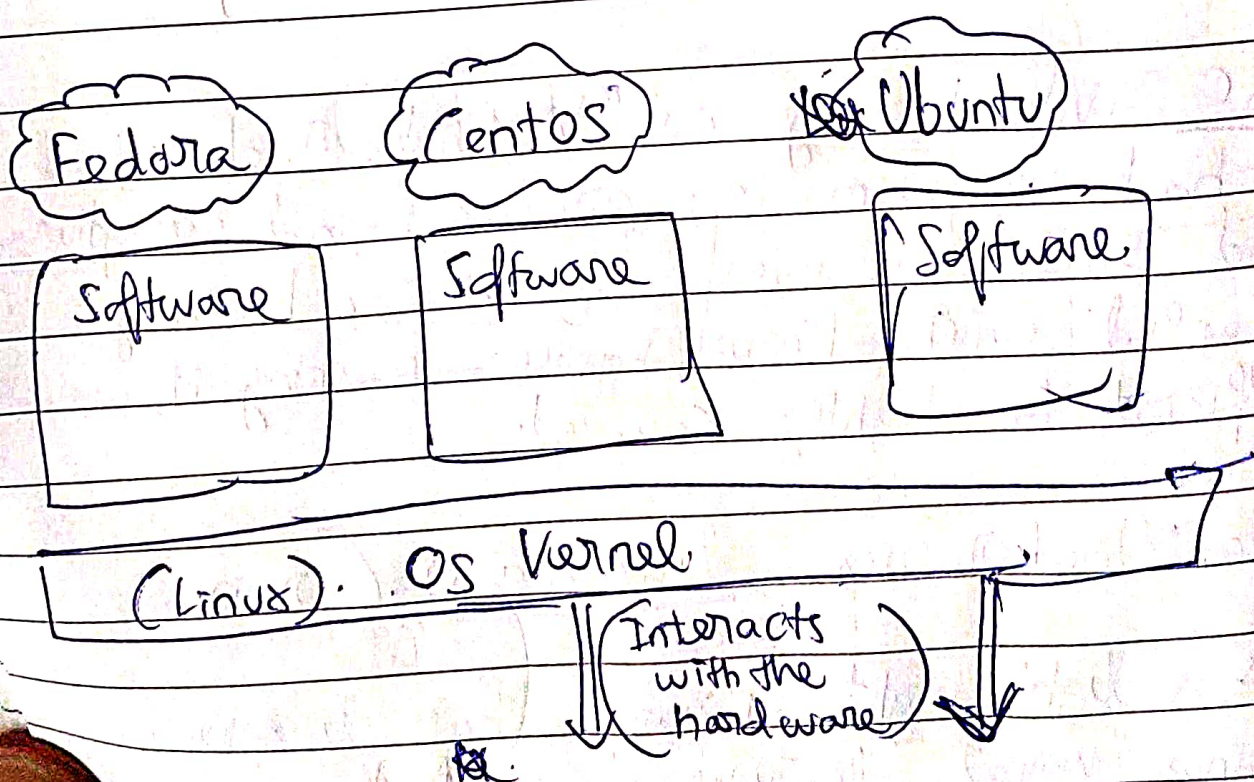 Fedora
Centos
Ubuntu
Software
Software
Software
(Linux). OS Kernel
(Interacts
with the
hardware)